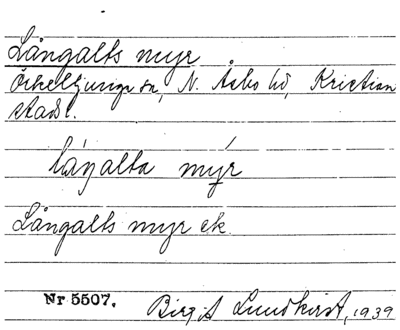 Långalts myr
Örkelljunga sn, N. Åsbo hd, Kristian
stads l.
láŋalta mýr
Långalts myr ek.
Nr 5507. Birgit Lundkvist, 1939